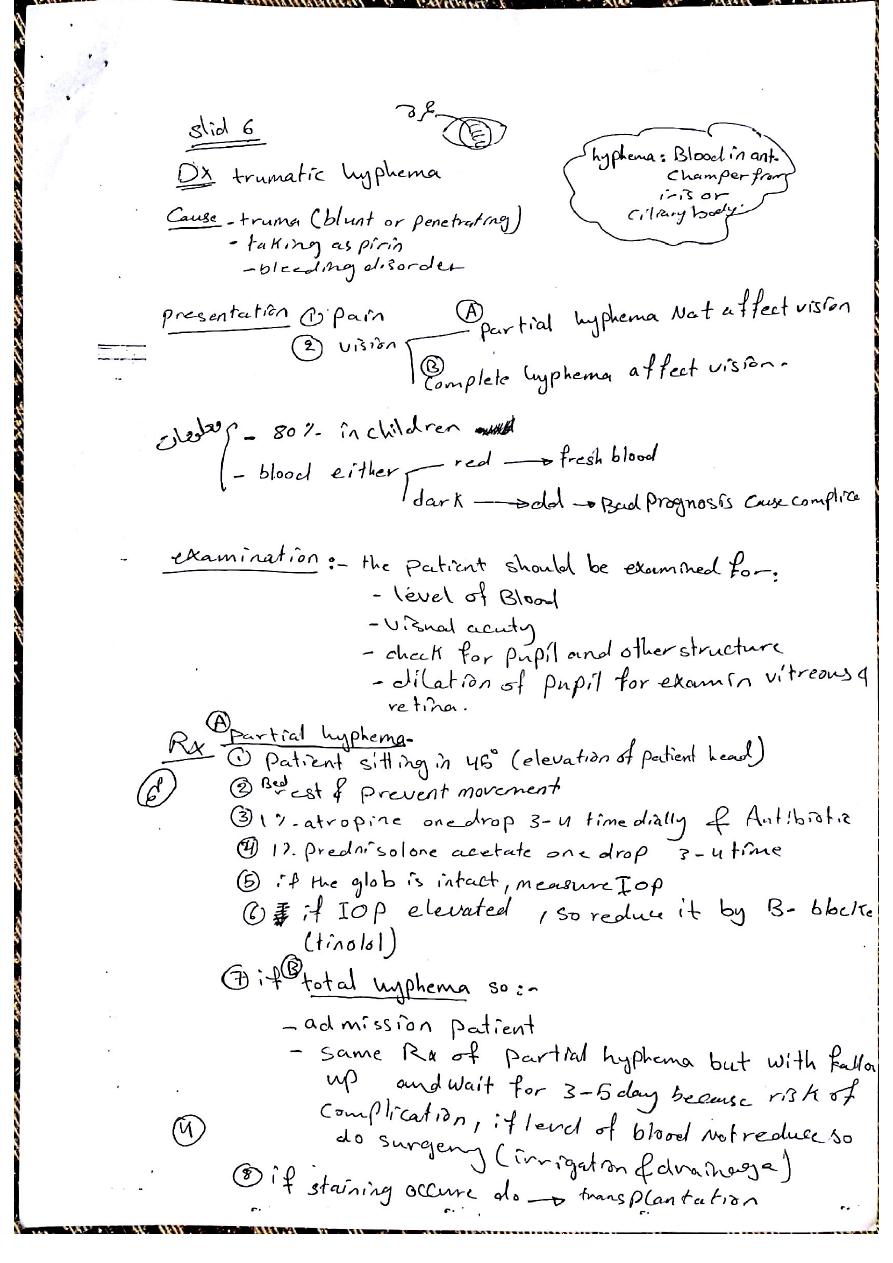 slid 6
hyphema: Blood in ant.
champer from
iris or
ciliary body.
Dx trumatic hyphema
Cause - truma (blunt or penetrating)
- taking aspirin
- bleeding disorder
presentation ① pain
② vision
Ⓐ partial hyphema Not affect vision
Ⓑ Complete hyphema affect vision.
معلومات
- 80% in children
- blood either red → fresh blood
dark → old → Bad prognosis cause complice
examination :- the patient should be examined for:
- level of Blood
- visual acuty
- check for pupil and other structure
- dilation of pupil for examin vitreous &
retina.
Rx Ⓐ partial hyphema-
① patient sitting in 45° (elevation of patient head)
② Bed rest & prevent movement
③ 1% atropine one drop 3-4 time dially & Antibiotic
④ 1% prednisolone acetate one drop 3-4 time
⑤ if the glob is intact, measure IOP
⑥ if IOP elevated , so reduce it by B- blocke
(timolol)
⑦ if Ⓑ total hyphema so :-
- admission patient
- same Rx of partial hyphema but with follo
up and wait for 3-5 day because risk of
complication, if level of blood Not reduce so
do surgery (irrigation & drainega)
④
⑧ if staining occure do → transplantation